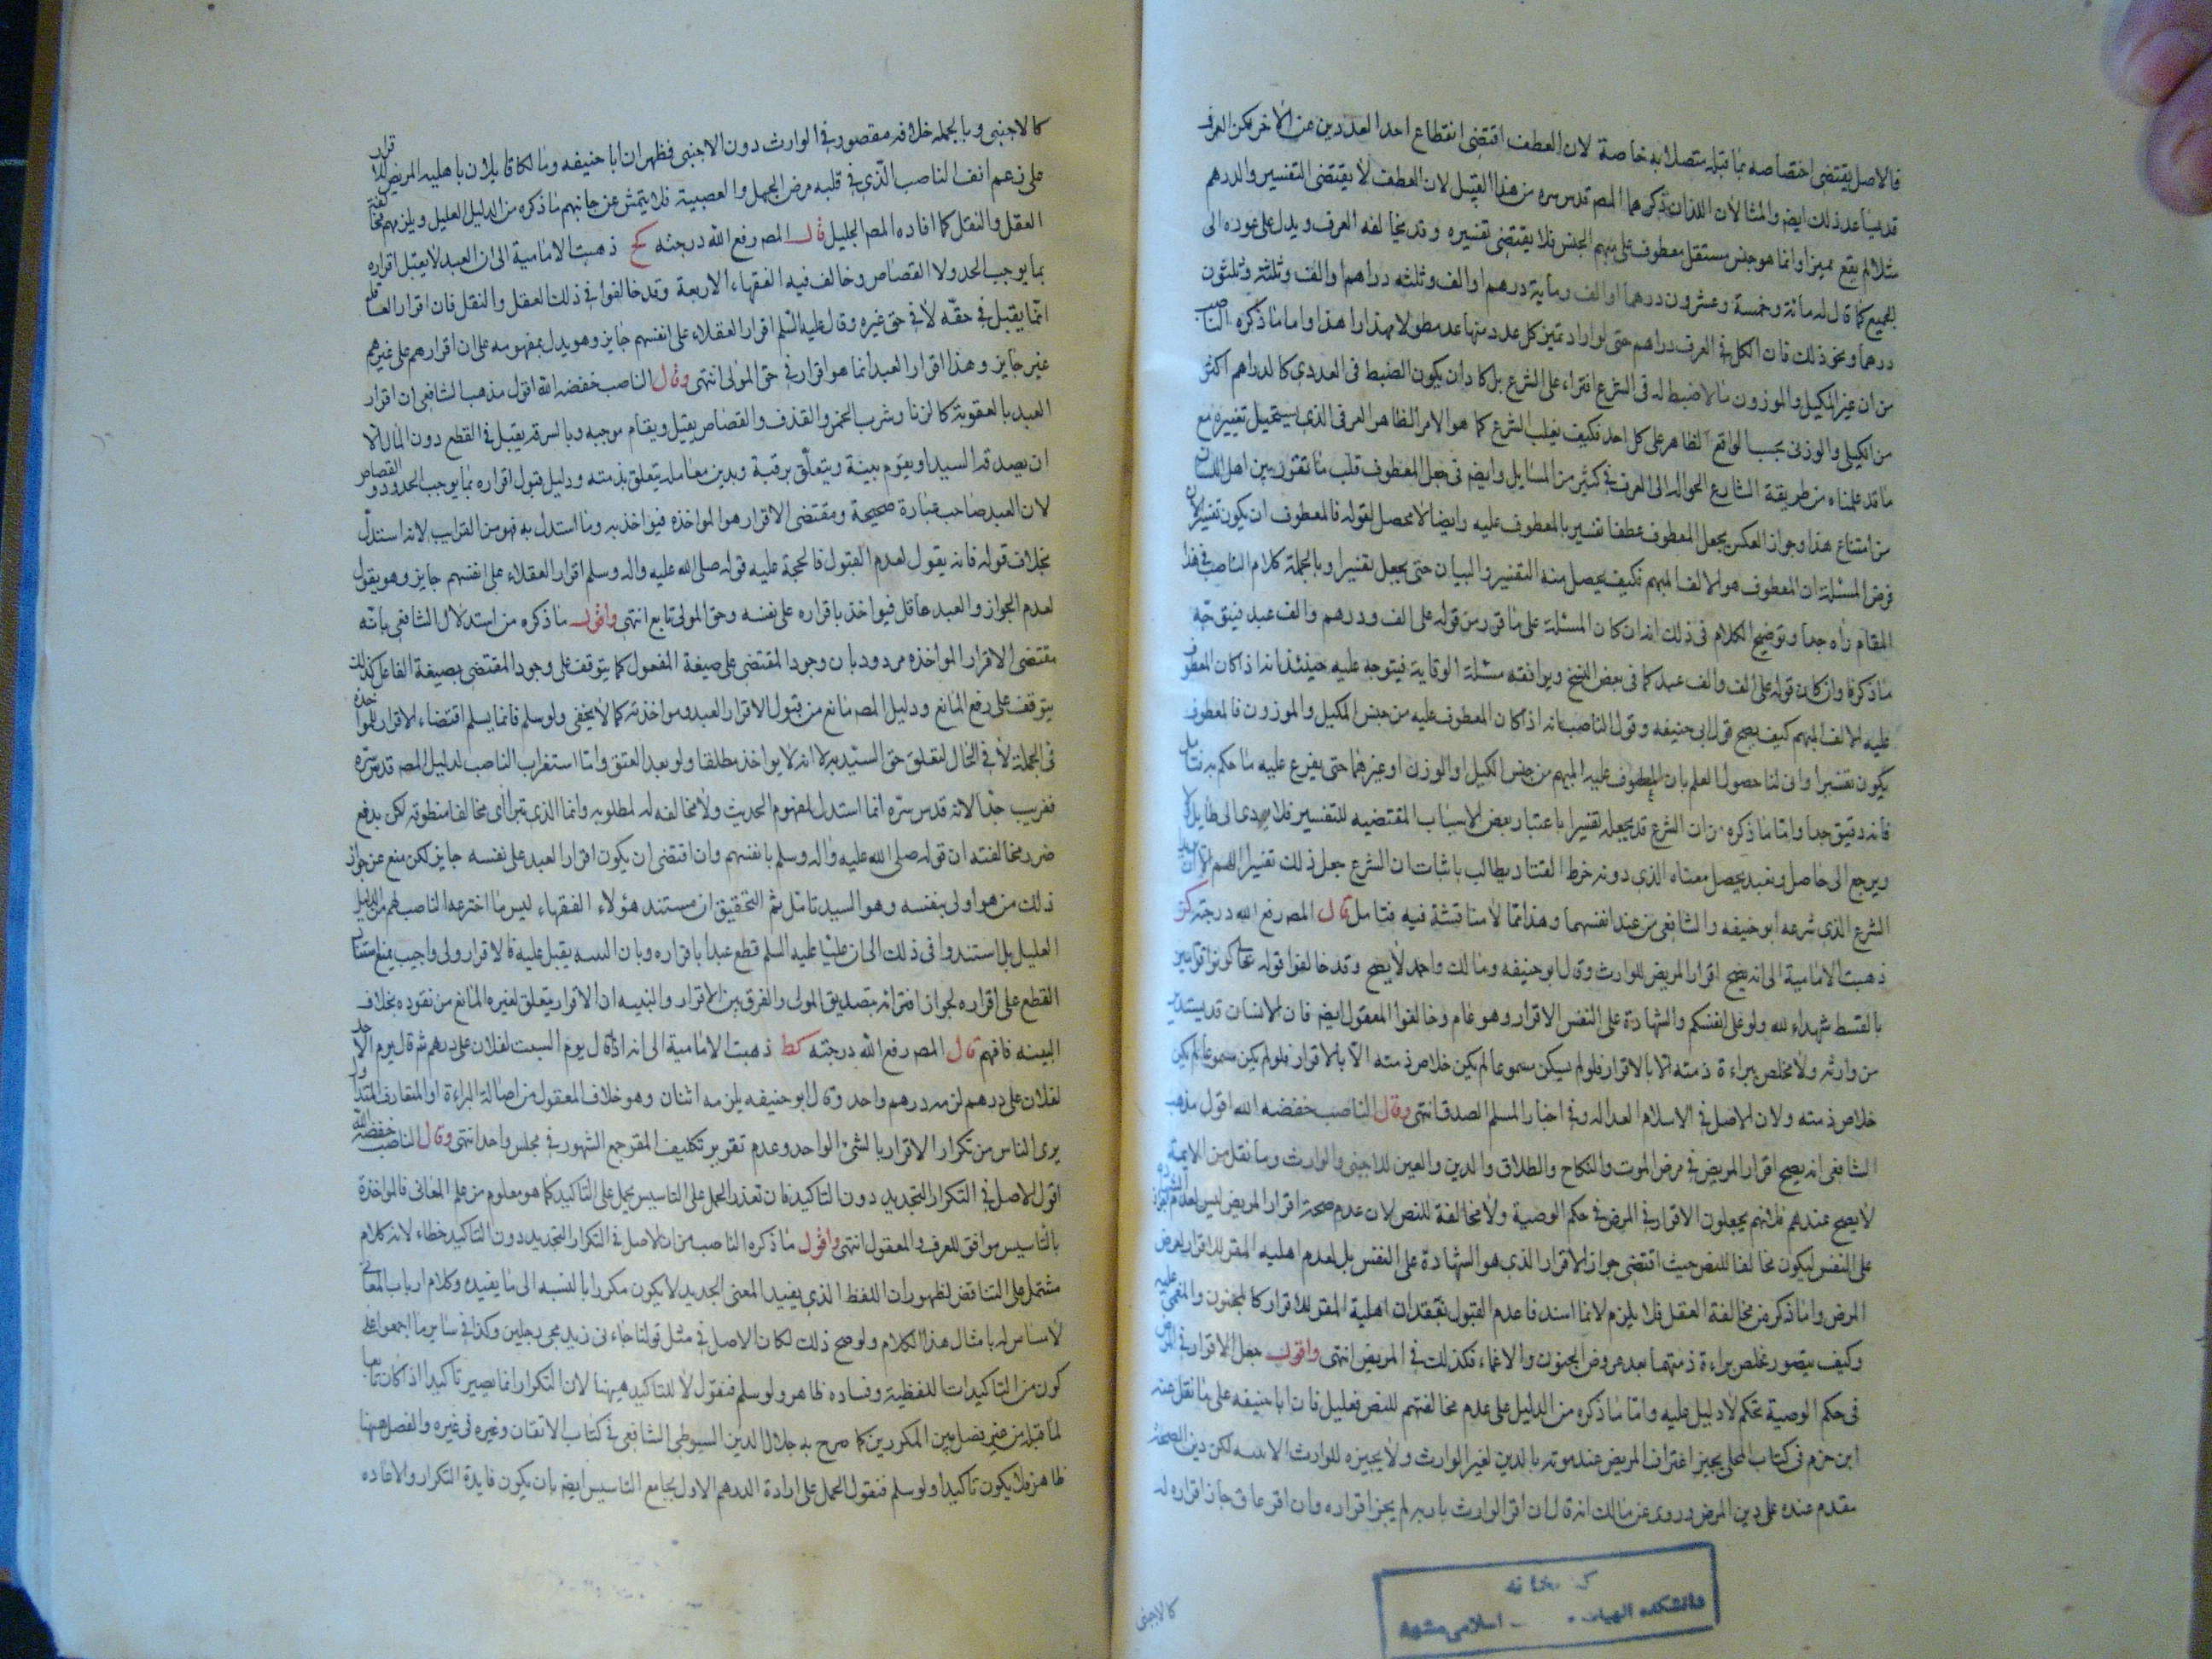 فالاصل يقتضى اختصاصه بما قبله متصلا به خاصة لان العطف اقتضى انقطاع احد العددين عن الاخر لكن العرف
قد يساعد ذلك ايضا والمثالان اللذان ذكرهما المص قدس سره من هذا القبيل لان العطف لا يقتضى التفسير والدرهم
مثلا لم يقع مميزا وانما هو جنس مستقل معطوف على مبهم الجنس فلا يقتضى تفسيره وقد يخالفه العرف ويدل على عوده الى
الجميع كما قال له مائة وخمسة وعشرون درهما او الف ومائة درهم او الف وثلثه دراهم او الف وثلثة وثلثون
درهما ونحو ذلك فان الكل فى العرف دراهم حتى لو اراد تميز كل عدد منها عد مطولا مهذارا هذا واما ما ذكره الناصب
من ان غير المكيل والموزون مما لا ضبط له فى الشرع افتراء على الشرع بل كاد ان يكون الضبط فى العددى كالدراهم اكثر
من الكيلى والوزنى بحسب الواقع الظاهر على كل احد فكيف يغلب الشرع كما هو الامر الظاهر العرفى الذى يستحيل تغييره مع
ما قد علمناه من طريقة الشارع الحواله الى العرف فى كثير من المسايل وايضا فى جعل المعطوف قلب ما تقرر بين اهل اللسان
من امتناع هذا وجواز العكس بجعل المعطوف عطفا تفسير بالمعطوف عليه وايضا لا محصل لقوله فالمعطوف ان يكون تفسيرا لان
فرض المسئلة ان المعطوف هو الالف المبهم فكيف يحصل منه التفسير والبيان حتى يجعل تفسيرا وبالجملة كلام الناصب فى هذا
المقام واه جدا وتوضيح الكلام فى ذلك انه ان كان المسئلة على ما قرر من قوله على الف ودرهم والف عبد فيتوجه
ما ذكرنا وان كان قوله على الف والف عبد كما فى بعض النسخ ويوافقه مسئلة الوقاية فيتوجه عليه حينئذ انه اذا كان المعطوف
عليه الالف المبهم كيف يصح قول ابى حنيفه وقول الناصب انه اذا كان المعطوف عليه من جنس المكيل والموزون فالمعطوف
يكون تفسيرا وان لنا حصول العلم بان المعطوف عليه المبهم من جنس الكيل او الوزن او غيرهما حتى يفرع عليه ما حكم به فتامل
فانه دقيق جدا واما ما ذكره من ان الشرع قد يجعله تفسيرا باعتبار بعض الاسباب المقتضيه للتفسير فلا يجدى الى طايل
ويرجع الى حاصل وبعد تحصل معناه الذى دونه خرط القتاد يطالب باثبات ان الشرع جعل ذلك تفسيرا اللهم الا ان يريد
الشرع الذى شرعه ابو حنيفه والشافعى من عند انفسهما وهذا مما لا مناقشة فيه فتامل قال المص رفع الله درجته كز
ذهبت الامامية الى انه يصح اقرار المريض للوارث وقال ابو حنيفه ومالك واحمد لا يصح وقد خالفوا قوله تعالى كونوا قوامين
بالقسط شهداء لله ولو على انفسكم والشهادة على النفس الاقرار وهو عام وخالفوا المعقول ايضا فان الانسان قد يستدين
من وارثه ولا مخلص لبراءة ذمته الا بالاقرار فلو لم يكن مسموعا لم يكن خلاص ذمته الا بالاقرار فلو لم يكن مسموعا لم يكن
خلاص ذمته ولان الاصل فى الاسلام العداله وفى اخبار المسلم الصدق انتهى وقال الناصب خفضه الله اقول مذهب
الشافعى انه يصح اقرار المريض فى مرض الموت والنكاح والطلاق والدين والعين للاجنبى والوارث وما نقل من الايمة
لا يصح عندهم فلانهم يجعلون الاقرار فى المرض فى حكم الوصية ولا مخالفة للنص لان عدم صحة اقرار المريض ليس لعدم جواز الشهاده
على النفس ليكون مخالفا للنص حيث اقتضى جواز الاقرار الذى هو الشهادة على النفس بل لعدم اهليه المقر للاقرار لعرض
المرض واما ذكر من مخالفة العقل فلا يلزم لانها اسند فاعدم القبول بفقدان اهلية المقر للاقرار كالمجنون والمغمى عليه
وكيف يتصور مخلص براءة ذمتهما بعد عروض الجنون والاغماء فكذلك فى المريض انتهى واقول جعل الاقرار فى المرض
فى حكم الوصية تحكم لا دليل عليه واما ما ذكره من الدليل على عدم مخالفتهم للنص فعليل فان ابا حنيفه على ما نقل عنه
ابن حزم فى كتاب المحلى يجيز اعتراف المريض عند موته بالدين لغير الوارث ولا يجيزه للوارث الا ببينه لكن دين الصحة
مقدم عنده على دين المرض وروى عن مالك انه قال ان اقر الوارث بار به لم يجز اقراره وان اقر عاق جاز اقراره له
كالاجنبى
كتابخانه
دانشكده الهيات - اسلامى مشهد
كالاجنبى وبالجمله خلافه مقصور فى الوارث دون الاجنبى فظهر ان ابا حنيفه ومالكا قايلان باهليه المريض للاقرار
على زعم انف الناصب الذى فى قلبه مرض الجهل والعصبية فلا يتمشى عن جانبهم ما ذكره من الدليل العليل ويلزمهم مخالفة
العقل والنقل كما افاده المص الجليل قال المص رفع الله درجته كح ذهبت الامامية الى ان العبد لا يقبل اقراره
بما يوجب الحد ولا القصاص وخالف فيه الفقهاء الاربعة وقد خالفوا فى ذلك العقل والنقل فان اقرار العاقل
انما يقبل فى حقه لا فى حق غيره وقال عليه السلم اقرار العقلاء على انفسهم جايز وهو يدل بمفهومه على ان اقرارهم على غيرهم
غير جايز وهذا اقرار العبد انما هو اقرار فى حق المولى انتهى وقال الناصب خفضه الله اقول مذهب الشافعى ان اقرار
العبد بالعقوبة كالزنا وشرب الخمر والقذف والقصاص يقبل ويقام موجبه وبالسرقه يقبل فى القطع دون المال الا
ان يصدقه السيد او يقوم بينة ويتعلق برقبة وبدين معامله يتعلق بذمته ودليل قبول اقراره بما يوجب الحدود والقصاص
لان العبد صاحب عبارة صحيحة ومقتضى الاقرار هو المواخذه فيواخذ به وما استدل به فهو من الغرايب لانه استدل
بخلاف قوله فانه يقول لعدم القبول فالحجة عليه قوله صلى الله عليه واله وسلم اقرار العقلاء على انفسهم جايز وهو يقول
لعدم الجواز والعبد عاقل فيواخذ باقراره على نفسه وحق المولى تابع انتهى واقول ما ذكره من استدلال الشافعى بانه
مقتضى الاقرار المواخذه مردود بان وجود المقتضى على صيغة المفعول كما يتوقف على وجود المقتضى بصيغة الفاعل كذلك
يتوقف على رفع المانع ودليل المص مانع من قبول الاقرار العبد ومواخذته كما لا يخفى ولو سلم فانما يسلم اقتضاء الاقرار للمواخذه
فى الجملة لا فى الحال لتعلق حق السيد به لا انه لا يواخذ مطلقا ولو بعد العتق واما استغراب الناصب لدليل المص قدس سره
فغريب جدا لانه قدس سره انما استدل بمفهوم الحديث ولا مخالفه له لمطلوبه وانما الذى يتراءى مخالفا منطوقه لكن يدفع
ضرر مخالفته ان قوله صلى الله عليه واله وسلم بانفسهم وان اقتضى ان يكون اقرار العبد على نفسه جايز لكن منع عن جواز
ذلك من هو اولى بنفسه وهو السيد تامل ثم التحقيق ان مستند هؤلاء الفقهاء ليس ما اخترعه الناصب لهم من الدليل
العليل بل استندوا فى ذلك الى ان عليا عليه السلم قطع عبدا باقراره وبان البينه يقبل عليه فالاقرار اولى واجيب بمنع استناد
القطع على اقراره لجواز اقترانه بتصديق المولى والفرق بين الاقرار والبينه ان الاقرار يتعلق لغيره المانع من نفوذه بخلاف
البينه فافهم قال المص رفع الله درجته كط ذهبت الامامية الى انه اذا قال يوم السبت لفلان على درهم ثم قال يوم الاحد
لفلان على درهم لزمه درهم واحد وقال ابو حنيفه يلزمه اثنان وهو خلاف المعقول من اصالة البراءة او المتعارف المتداول
يرى الناس من تكرار الاقرار بالشئ الواحد وعدم تقرير تكليف المقر جمع الشهور فى مجلس واحد انتهى وقال الناصب خفضه الله
اقول الاصل فى التكرار التجديد دون التاكيد فان تعذر الحمل على التاسيس يحمل على التاكيد كما هو معلوم من علم المعانى فالمواخذة
بالتاسيس موافق للعرف والمعقول انتهى واقول ما ذكره الناصب من ان الاصل فى التكرار التجديد دون التاكيد خطاء لانه كلام
مشتمل على التناقض لظهور ان اللفظ الذى يفيد المعنى الجديد لا يكون مكررا بالنسبه الى ما يفيده وكلام ارباب المعانى
لا مساس له بامثال هذا الكلام ولو صح ذلك لكان الاصل فى مثل قولنا جاءنى زيد مجئ رجلين وكذا فى ساير ما اجمعوا على
كون من التاكيدات اللفظية وفساده ظاهر ولو سلم فنقول لا للتاكيد هيهنا لان التكرار انما يصير تاكيدا اذا كان تابعا
لما قبله من غير فصل بين المكررين كما صرح به جلال الدين السيوطى الشافعى فى كتاب الاتقان وغيره فى غيره والفصل هيهنا
ظاهر فلا يكون تاكيدا ولو سلم فنقول الحمل على ارادة الدرهم الاول يجامع التاسيس ايضا بان يكون فايدة التكرار والاعاده